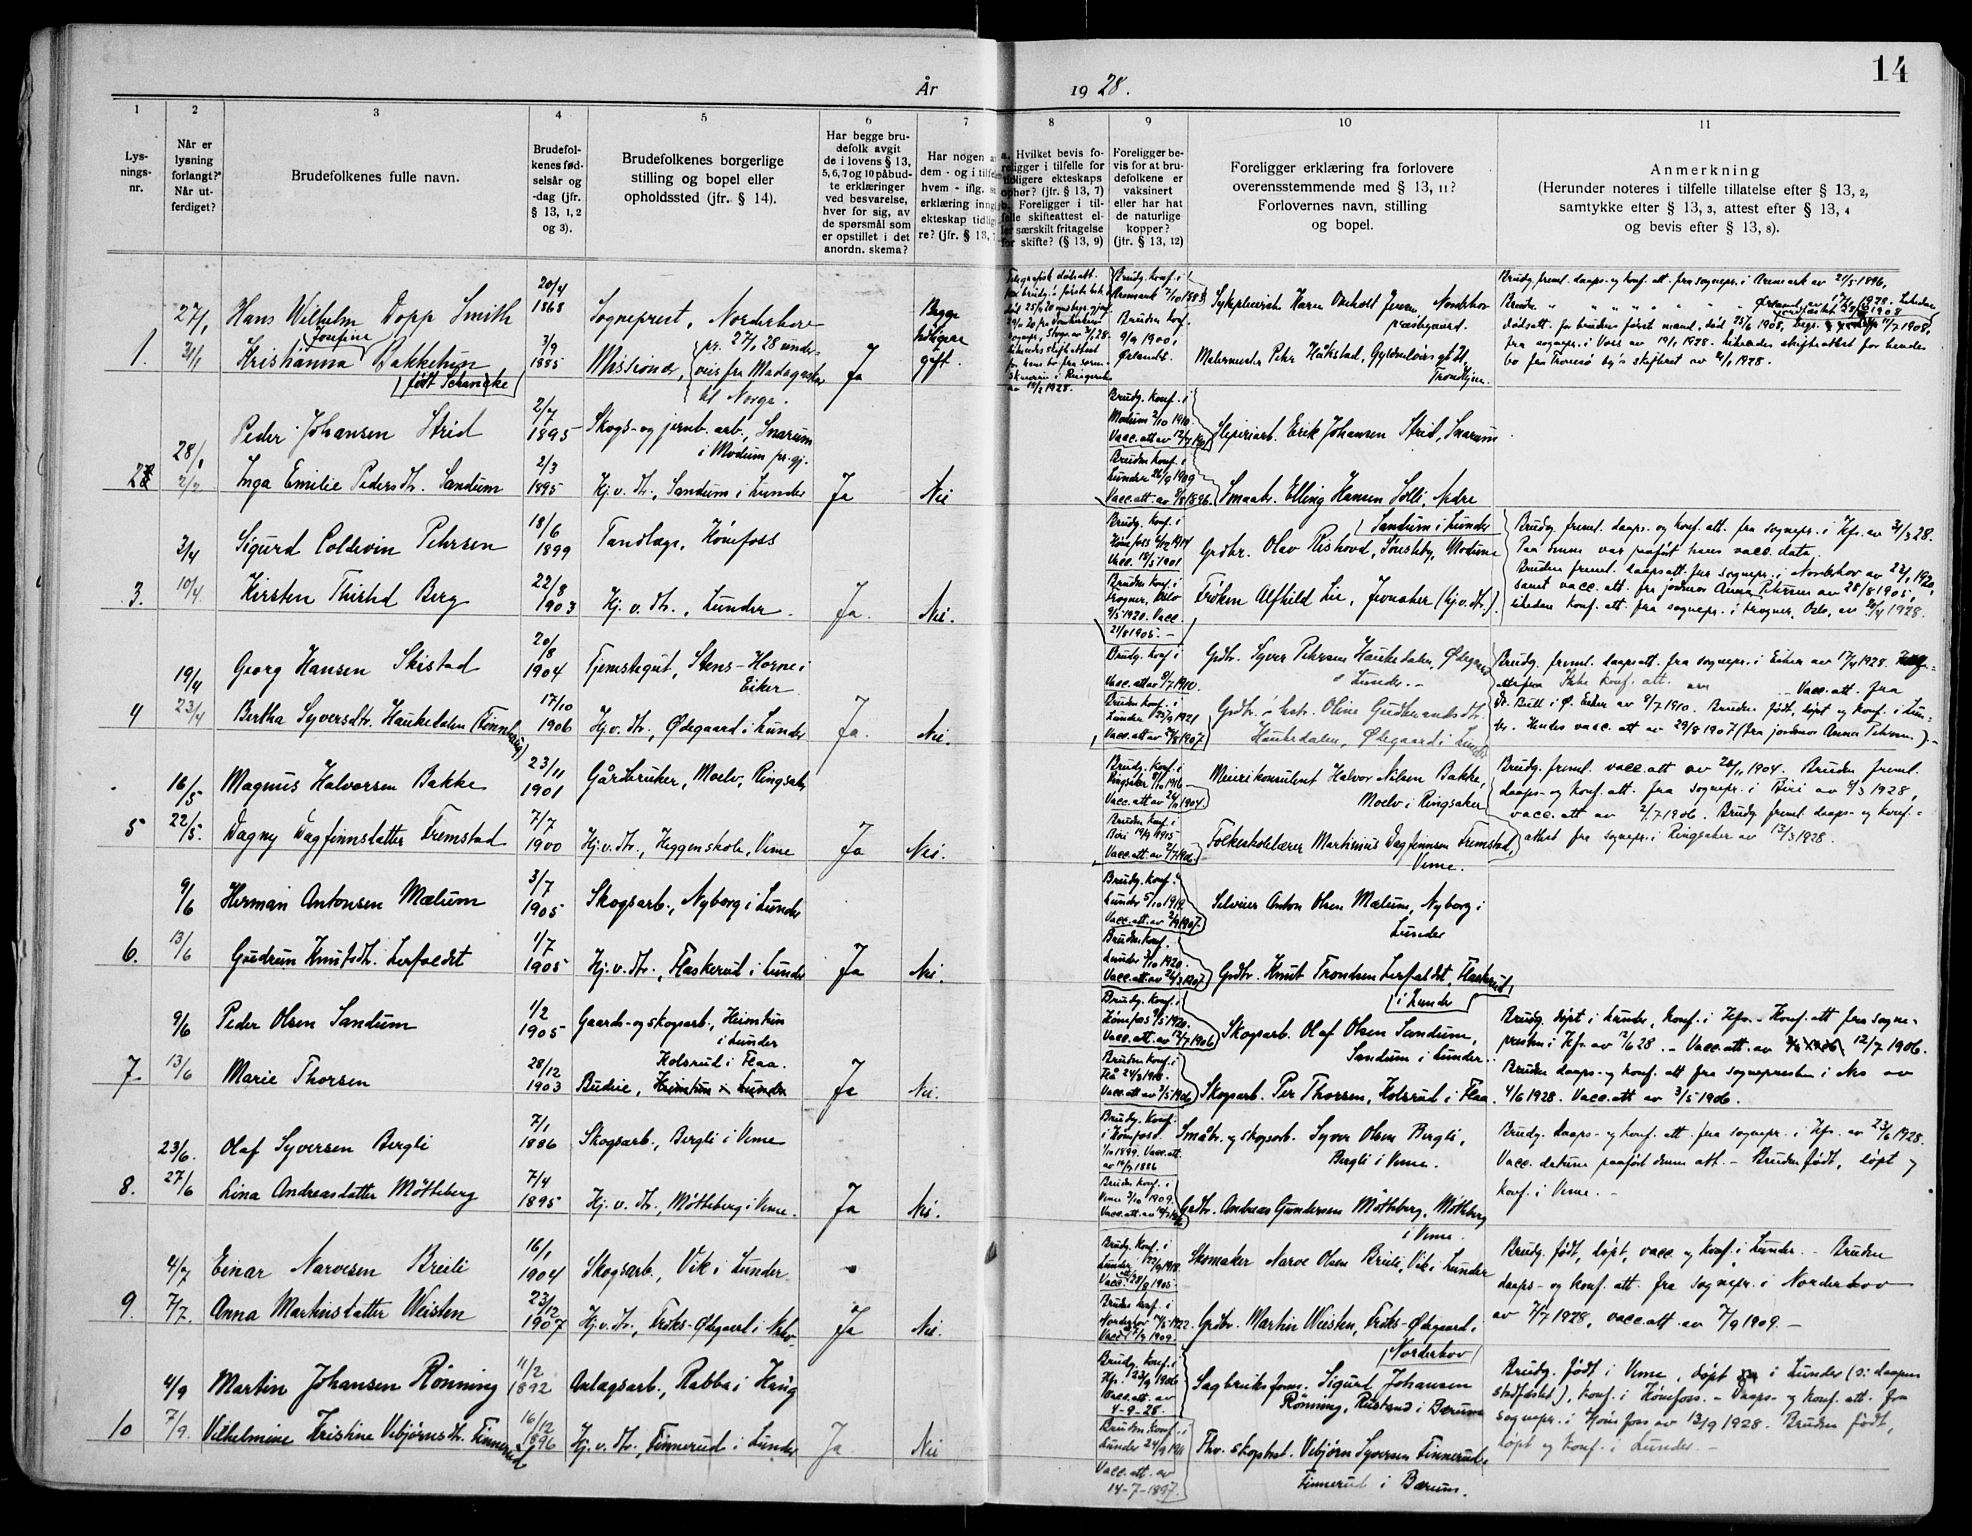 14
År 1928.
1
2
3
4
5
6
7
8
9
10
11
Lys-
nings-
nr.
Når er
lysning
forlangt?
Når ut-
ferdiget?
Brudefolkenes fulle navn.
Brudefol-
kenes fød-
selsår og
-dag (jfr.
§ 13, 1, 2
og 3).
Brudefolkenes borgerlige
stilling og bopel eller
opholdssted (jfr. § 14).
Har begge bru-
defolk avgit
de i lovens § 13,
5, 6, 7 og 10 påbud-
te erklæringer
ved besvarelse,
hver for sig, av
de spørsmål som
er opstillet i det
anordn. skema?
Har nogen a
dem - og i tilfe
hvem - iflg. s
erklæring inng
ekteskap tidlig
re? (jfr. § 13,
a. Hvilket bevis fo-
religger i tilfelle for
tidligere ekteskaps
ophør? (jfr. § 13, 7)
b. Foreligger i til-
felle skifteattest el-
ler særskilt fritagelse
for skifte? (§ 13, 9)
Foreligger be-
vis for at bru-
defolkene er
vaksinert
eller har hat
de naturlige
kopper?
(jfr. § 13, 12)
Foreligger erklæring fra forlovere
overensstemmende med § 13, 11?
Forlovernes navn, stilling
og bopel.
Anmerkning
(Herunder noteres i tilfelle tillatelse efter § 13, 2,
samtykke efter § 13, 3, attest efter § 13, 4
og bevis efter § 13, 8).
1.
27/1
31/1
Hans Wilhelm Dopp Smith
Josefine
Kristianna Bakkehun
født Schancke
20/4
1868
3/9
1885
Sogneprest, Norderhov
Missionær,
pr. 27/1 28 under-
veis fra Madagaskar
til Norge.
Ja
Begge
tidligere
gift.
Brudg. konf. i
Aremark
Bruden konf.
9/9 1900,
prestegaard.
Petr Håkstad, Gyldenløvesgt 21,
Trondhjem.
Brudg. freml. daaps- og konf. att. fra sognepr. i Aremark av 21/5 1896,
dødsatt. for brudens først mand, død 25/6 1908,
fra sognepr. i Voss av 19/1 1928.
bo fra Tromsø
2
28/1
2/2
Peder Johansen Strid
Inga Emilie Pedersdtr. Sandum
2/7
1895
2/3
1895
Skogs- og jernb. arb., Snarum
i Modum pr. gj.
Hj. v. dtr., Sandum i Lunder
Ja
Nei
Brudg. konf. i
Modum 2/10 1910.
Vacc. att. av
Bruden konf. i
Lunder 26/9 1909
Vacc. att. av 9/8 1896.
Sliperiarb. Erik Johansen Strid, Snarum
Smaabr. Elling Hansen Solli, Nedre
Sandum i Lunder
3.
3/4
10/4.
Sigurd Coldevin Pehrsen
Kirsten Thirstid Berg
18/6
1899
22/8
1903
Tandlæge, Hønefoss
Hj. v. dtr., Lunder.
Ja.
Nei.
Brudg. konf. i
Hønefoss
Vacc. 18/5 1901
Bruden konf. i
Frogner, Oslo
9/5 1920. Vacc.
21/8 1905.
Grdbr. Olav Rishovd, Sønsteby, Modum
Frøken Alfhild Lie, Jevnaker (hj. v. dtr.).
Brudg. freml. daaps- og konf. att. fra sognepr. i Hfs. av 31/3 28.
Paa denne var paaført hans vacc. data.
Bruden freml. daapsatt. fra sognepr. i Norderhov av 22/1 1920,
samt vacc. att. fra jordmor Anna Pehrsen av 28/8 1905,
likeden konf. att. fra sognepr. i Frogner, Oslo, av 20/4 1928.
4
19/4
23/4
Georg Hansen Skistad
Bertha Syversdtr. Haukedalen (Finnhaug)
20/8
1904
17/10
1906
Tjenstegut, Stens-Horne i
Eiker
Hj. v. dtr., Ødegaard i Lunder
Ja.
Nei.
Brudg. konf. i
Vacc. att av 8/7 1910.
Bruden konf. i
Lunder 25/9 1921
Vacc. att av 29/8 1907.
Grdbr. Syver Pehrsen Haukedalen, Ødegaard
i Lunder.
Oline Gudbrandsdtr.
Haukedalen, Ødegaard i Lunder
Brudg. freml. daapsatt. fra sognepr. i Eiker av 17/4 1928.
Ikke konf. att. Vacc. att. fra
Dr. Bull i Ø. Eiker av 8/7 1910. Bruden født, døpt og konf. i Lun-
der. Hendes vacc. att av 29/8 1907 (fra jordmor Anna Pehrsen.)
5
16/5
22/5.
Magnus Halvorsen Bakke
Dagny Dagfinnsdatter Fremstad
23/11
1901
7/7
1900
Gårdbruker, Moelv, Ringsaker
Hj. v. dtr., Heggenskole, Veme
Ja
Nei.
Brudg. konf. i
Ringsaker 8/10 1916
Vacc. att av 28/11 1904.
Bruden konf. i
Biri 19/9 1915
Vacc. att. av 2/7 1906
Meierikonsulent Halvor Nilsen Bakke,
Moelv i Ringsaker
Folkeskolelærer Martinius Dagfinnsen Fremstad,
Veme.
Brudg. freml. vacc. att av 28/11 1904. Bruden freml.
daaps- og konf. att. fra sognepr. i Biri av 9/3 1928,
vacc. att av 2/7 1906. Brudg. freml. daaps- og konf.-
attest fra sognepr. i Ringsaker av 13/3 1928.
6.
9/6
13/6
Herman Antonsen Mælum
Gudrun Knutsdtr. Lerfaldet
3/7
1905
1/7
1905
Skogsarb., Nyborg i Lunder
Hj. v. dtr., Flaskerud i Lunder
Ja
Nei.
Brudg. konf. i
Lunder 5/10 1919.
Vacc. att. av 2/9 1907.
Bruden konf.
Lunder 3/10 1920.
Vacc. att. av
Selveier Anton Olsen Mælum, Nyborg i
Lunder
Grdbr. Knut Trondsen Lerfaldet, Flaskerud,
i Lunder
7
9/6
13/6
Peder Olsen Sandum
Marie Thorsen
1/2
1905
28/12
1903
Gaards- og skogsarb., Heimtun
i Lunder
Kolsrud i Flaa.
Budeie, Heimtun i Lunder
Ja
Nei.
Brudg. konf. i
Hønefoss 9/5 1920.
Vacc. att. av 12/7 1906
Bruden konf. i
Flå 24/9 1918.
Vacc. att av 3/5 1906
Skogsarb. Olaf Olsen Sandum,
Sandum i Lunder.
Skogsarb. Per Thorsen, Kolsrud i Flaa.
Brudg. døpt i Lunder, konf. i Hfs. - Konf. att fra sogne-
presten i Hfs. av 2/6 28. - Vacc. att. av 12/7 1906.
Bruden daaps- og konf. att fra sognepresten i Nes av
4/6 1928. Vacc. att av 3/5 1906.
8.
23/6.
27/6
Olaf Syversen Bergli
Lina Andreasdatter Møtteberg
7/1
1886
7/4
1895
Skogsarb., Bergli i Veme
Hj. v. dtr., Møtteberg i Veme.
Ja
Nei.
Brudg. konf.
i Hønefoss.
1/10 1899. Vacc. att.
av 14/9 1886
Bruden konf. i
Veme 3/10 1909.
Vacc. att. av
Småbr. og skogsarb. Syver Olsen Bergli,
Bergli i Veme.
Grdbr. Andreas Gundersen Møtteberg, Møtteberg
i Veme.
Brudg. daaps- og konf. att. fra sognepr. i Hfs. av 23/6 1928.
Vacc. datum paaført denne att. - Bruden født, døpt og
konf. i Veme. -
9.
4/7
7/7.
Einar Narvesen Breili
Anna Martinsdatter Weisten
16/1
1904
23/12
1907
Skogsarb., Vik i Lunder
Hj. v. dtr., Friks-Ødegaard i Nhov.
Ja
Nei.
Brudg. konf. i
Lunder
Bruden konf. i
Norderhov
Vacc. 7/9 1909.
Skomaker Narve Olsen Breili, Vik i Lunder
Grdbr. Martin Weisten, Friks-Ødegaard i
Norderhov
Brudg. født, døpt, vacc. og konf. i Lunder. - Bruden
daaps- og konf. att. fra sognepr. i Norderhov
av 7/7 1928, vacc. att av 7/9 1909. -
10
4/9
7/9.
Martin Johansen Rønning
Vilhelmine Kristine Vebjørnsdtr. Finnerud
11/2
1892
16/12
1896
Anlægsarb., Rabba i Haug
Hj. v. dtr., Finnerud i Lunder
Ja
Nei
Brudg. konf. i
Hfs. 23/9 1906
Vacc. att av
4-9-28.
Bruden konf. i
Lunder 24/9 1911
Vacc. att. av
14-7-1897.
Sagbruksform. Sigurd Johansen
Rønning, Rustand i Bærum
Fhv. skogsbest. Vebjørn Syversen Finnerud,
Finnerud i Bærum.
Brudg. født i Veme, døpt i Lunder (o: daapen
stadfæstet), konf. i Hønefoss. - Daaps- og konf. att. fra
sognepr. i Hønefoss av 13/9 1928. Bruden født,
døpt og konf. i Lunder. -